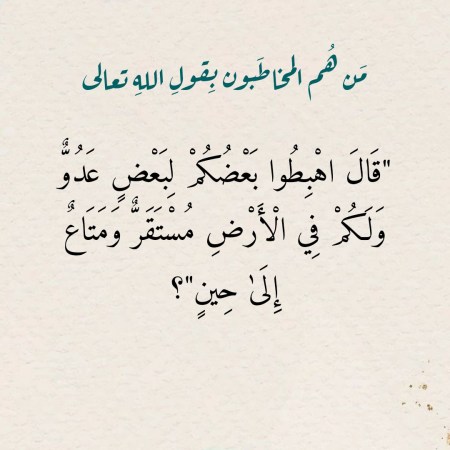 مَن هُم المخاطَبون بِقولِ اللهِ تعالى
"قَالَ اهْبِطُوا بَعْضُكُمْ لِبَعْضٍ عَدُوٌّ
وَلَكُمْ فِي الْأَرْضِ مُسْتَقَرٌّ وَمَتَاعٌ
إِلَىٰ حِينٍ"؟